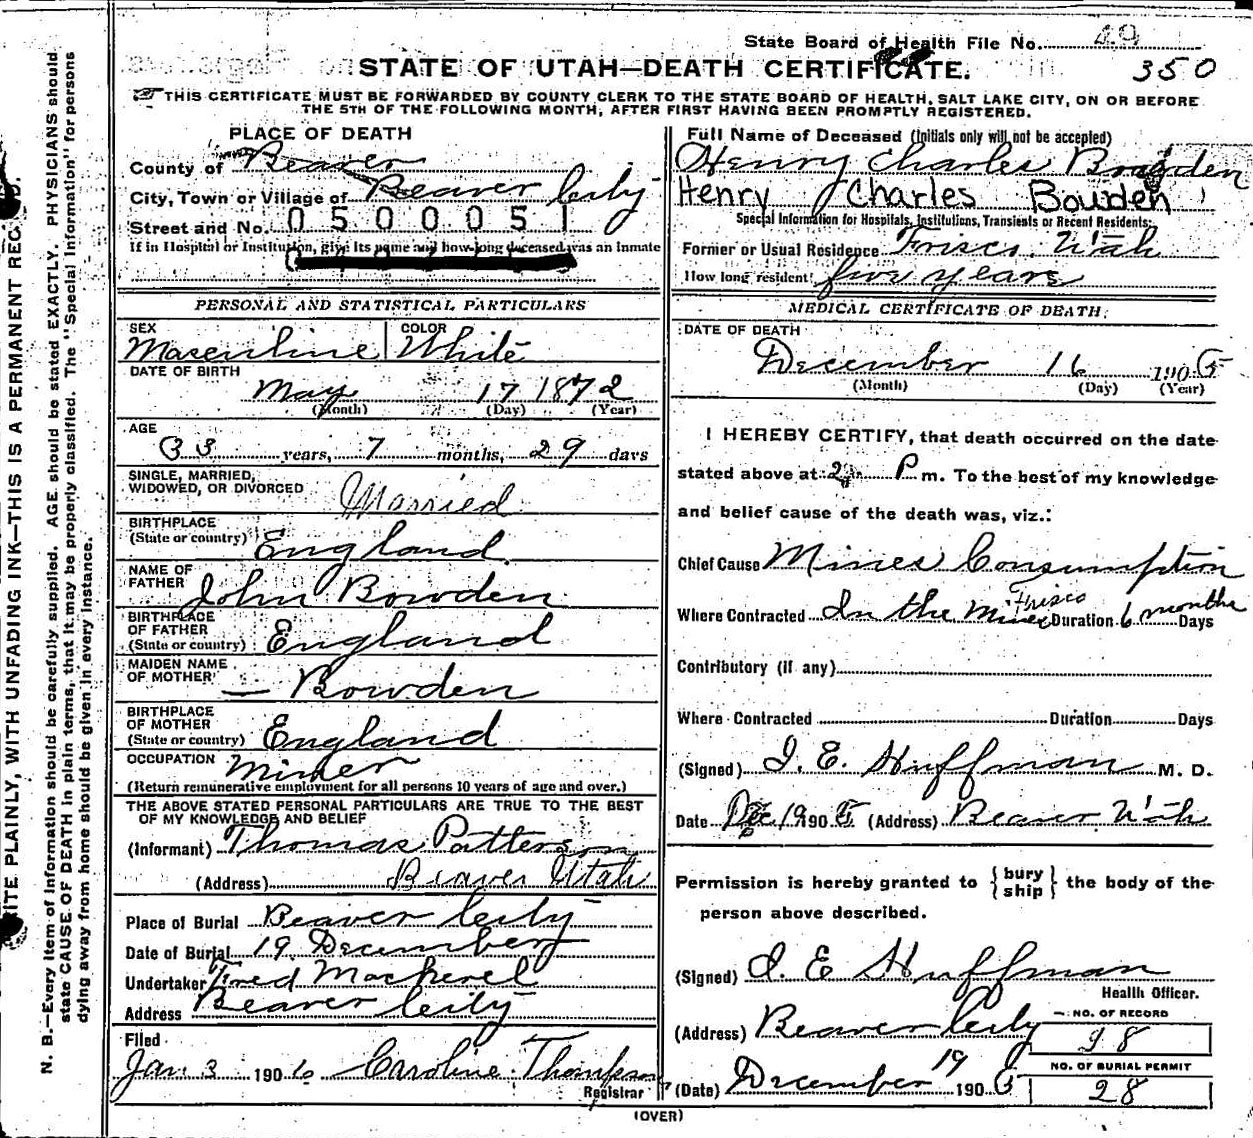 State Board of Health File No. 49
350
STATE OF UTAH—DEATH CERTIFICATE.
THIS CERTIFICATE MUST BE FORWARDED BY COUNTY CLERK TO THE STATE BOARD OF HEALTH, SALT LAKE CITY, ON OR BEFORE
THE 5TH OF THE FOLLOWING MONTH, AFTER FIRST HAVING BEEN PROMPTLY REGISTERED.
N. B.—Every item of information should be carefully supplied. AGE should be stated EXACTLY. PHYSICIANS should
state CAUSE OF DEATH in plain terms, that it may be properly classified. The "Special Information" for persons
dying away from home should be given in every instance.
ITE PLAINLY, WITH UNFADING INK—THIS IS A PERMANENT REC D.
PLACE OF DEATH
County of Beaver
City, Town or Village of Beaver City
Street and No. 0500051
If in Hospital or Institution, give its name and how long deceased was an inmate
PERSONAL AND STATISTICAL PARTICULARS
SEX Masculine COLOR White
DATE OF BIRTH
May 17 1872
(Month) (Day) (Year)
AGE
33 years, 7 months, 29 days
SINGLE, MARRIED,
WIDOWED, OR DIVORCED Married
BIRTHPLACE
(State or country) England
NAME OF
FATHER John Bowden
BIRTHPLACE
OF FATHER
(State or country) England
MAIDEN NAME
OF MOTHER — Bowden
BIRTHPLACE
OF MOTHER
(State or country) England
OCCUPATION Miner
(Return remunerative employment for all persons 10 years of age and over.)
THE ABOVE STATED PERSONAL PARTICULARS ARE TRUE TO THE BEST
OF MY KNOWLEDGE AND BELIEF
(Informant) Thomas Patterson
(Address) Beaver Utah
Place of Burial Beaver City
Date of Burial 19 December
Undertaker Fred Mackerel
Address Beaver City
Filed
Jan 3 1906 Caroline Thompson
Registrar
Full Name of Deceased (Initials only will not be accepted)
Henry Charles Bowden
Henry Charles Bowden
Special Information for Hospitals, Institutions, Transients or Recent Residents:
Former or Usual Residence Frisco, Utah
How long resident? five years
MEDICAL CERTIFICATE OF DEATH.
DATE OF DEATH
December 16 1905
(Month) (Day) (Year)
I HEREBY CERTIFY, that death occurred on the date
stated above at 2 P m. To the best of my knowledge
and belief cause of the death was, viz.:
Chief Cause Mines Consumption
Where Contracted In the Mines Frisco Duration 6 months Days
Contributory (if any)
Where Contracted Duration Days
(Signed) I. E. Huffman M. D.
Date Dec 19 1905 (Address) Beaver, Utah
Permission is hereby granted to { bury ship } the body of the
person above described.
(Signed) I. E Huffman
Health Officer.
(Address) Beaver City
(Date) December 19 1905
NO. OF RECORD
98
NO. OF BURIAL PERMIT
28
(OVER)